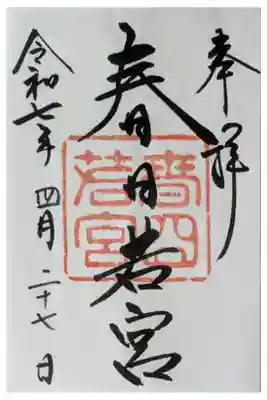 奉拝
春日若宮
令和七年 四月 二十七日